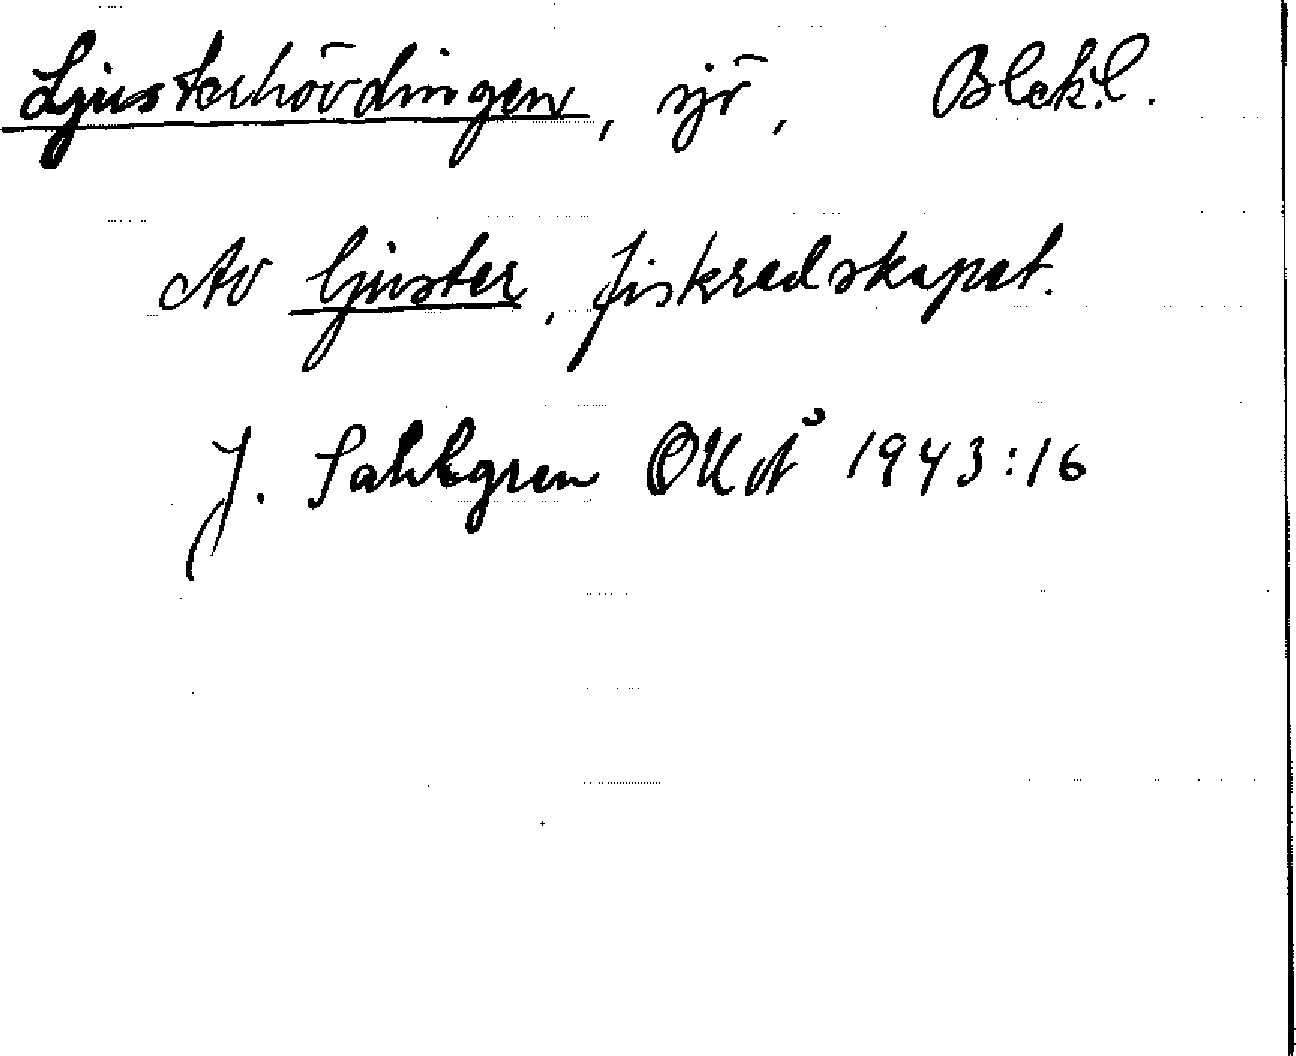 Ljusterhövdingen, sjö, Blek.l.
Av ljuster, fiskredskapet.
J. Sahlgren OUÅ 1943:16